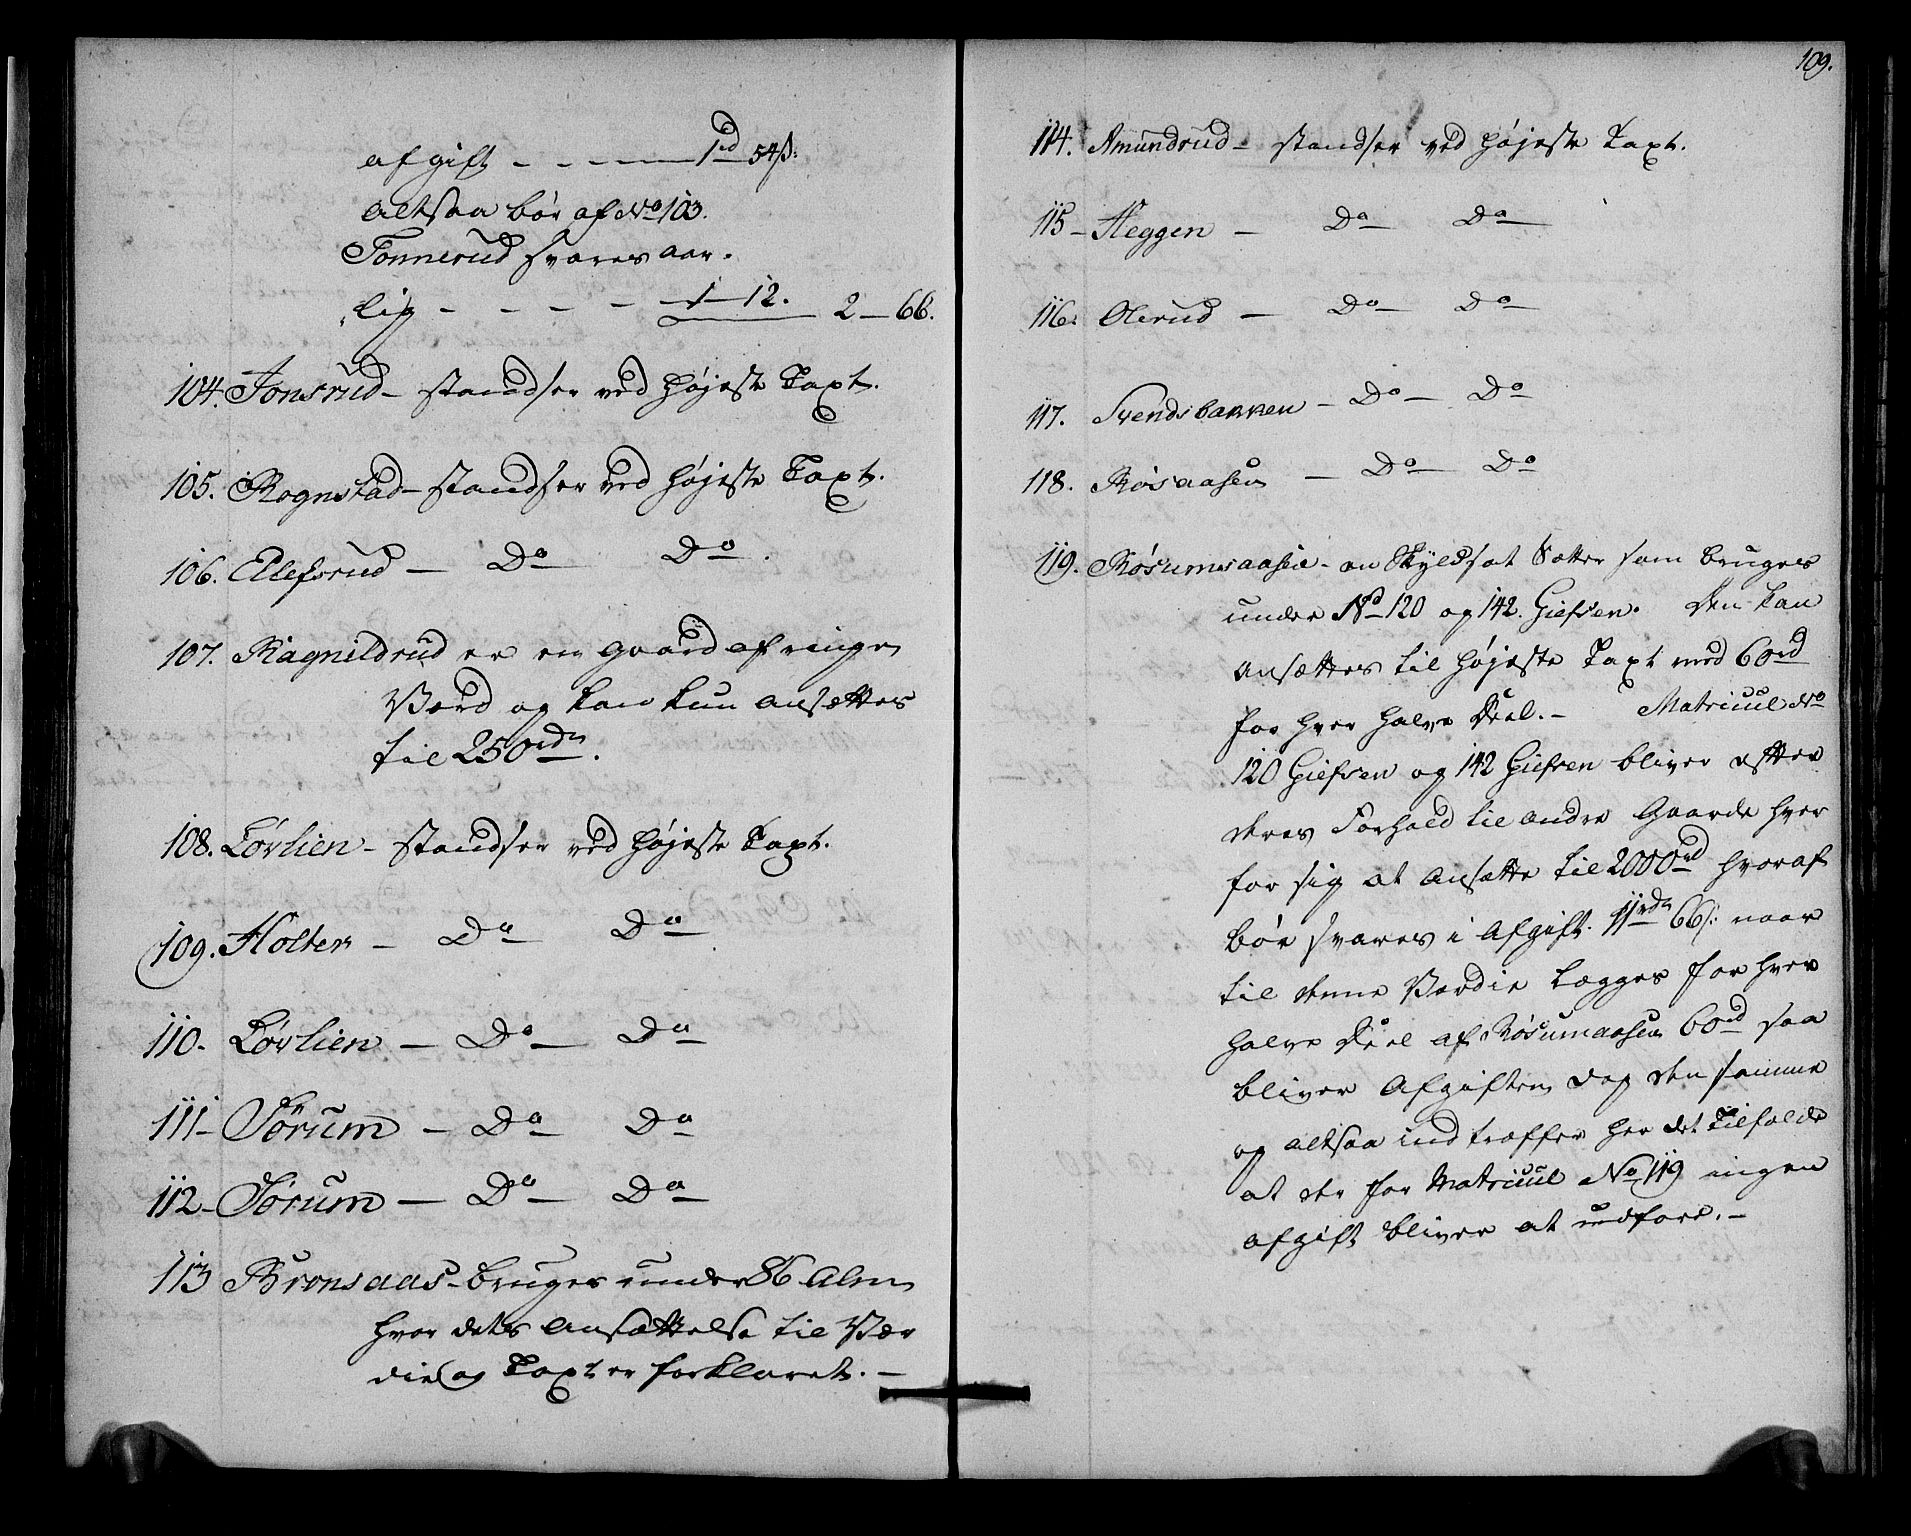 afgift - - - - 1rd 54ß.
altsaa bör af No 103.
Tonnerud svares aar-
lig - - - - 1 - 12. 2 - 66.
104. Jonsrud - standser ved højeste Taxt.
105. Rognstad - standser ved højeste Taxt.
106. Ellefsrud - Do Do.
107. Ragnildrud er en gaard af ringe
Værd og kan kun ansættes
til 250rdr.
108. Lørlien - standser ved højeste Taxt.
109. Holter - Do Do
110. Lørlien - Do - Do
111 - Sørum - Do - Do
112 - Sørum - Do - Do
113 Bronsaas - bruges under 86 Alm
hvor dets Ansættelse til Vær
die og Taxt er forklaret. -
109.
114. Amundrud - standser ved højeste Taxt.
115 - Heggen - Do - Do
116. Olerud - Do - Do
117. Svendsbakken - Do - Do
118. Røisaasen - Do - Do
119. Røsumsaasen - en Skyldsat Sætter som bruges
under No 120 og 142. Giefsen. Den kan
ansættes til højeste Taxt med 60rd
for hver halve Deel. - Matricul No
120 Giefsen og 142 Giefsen bliver efter
deres Forhold til andre Gaarde hver
for sig at ansætte til 2000rd hvoraf
bør svares i Afgift 11rdr 66ß. naar
til denne Værdie lægges for hver
halve Deel af Røsumaasen 60rd saa
bliver Afgiften dog den samme
og altsaa indtræffer her det Tilfælde
at der for Matricul No 119 ingen
afgift bliver at udføre. -